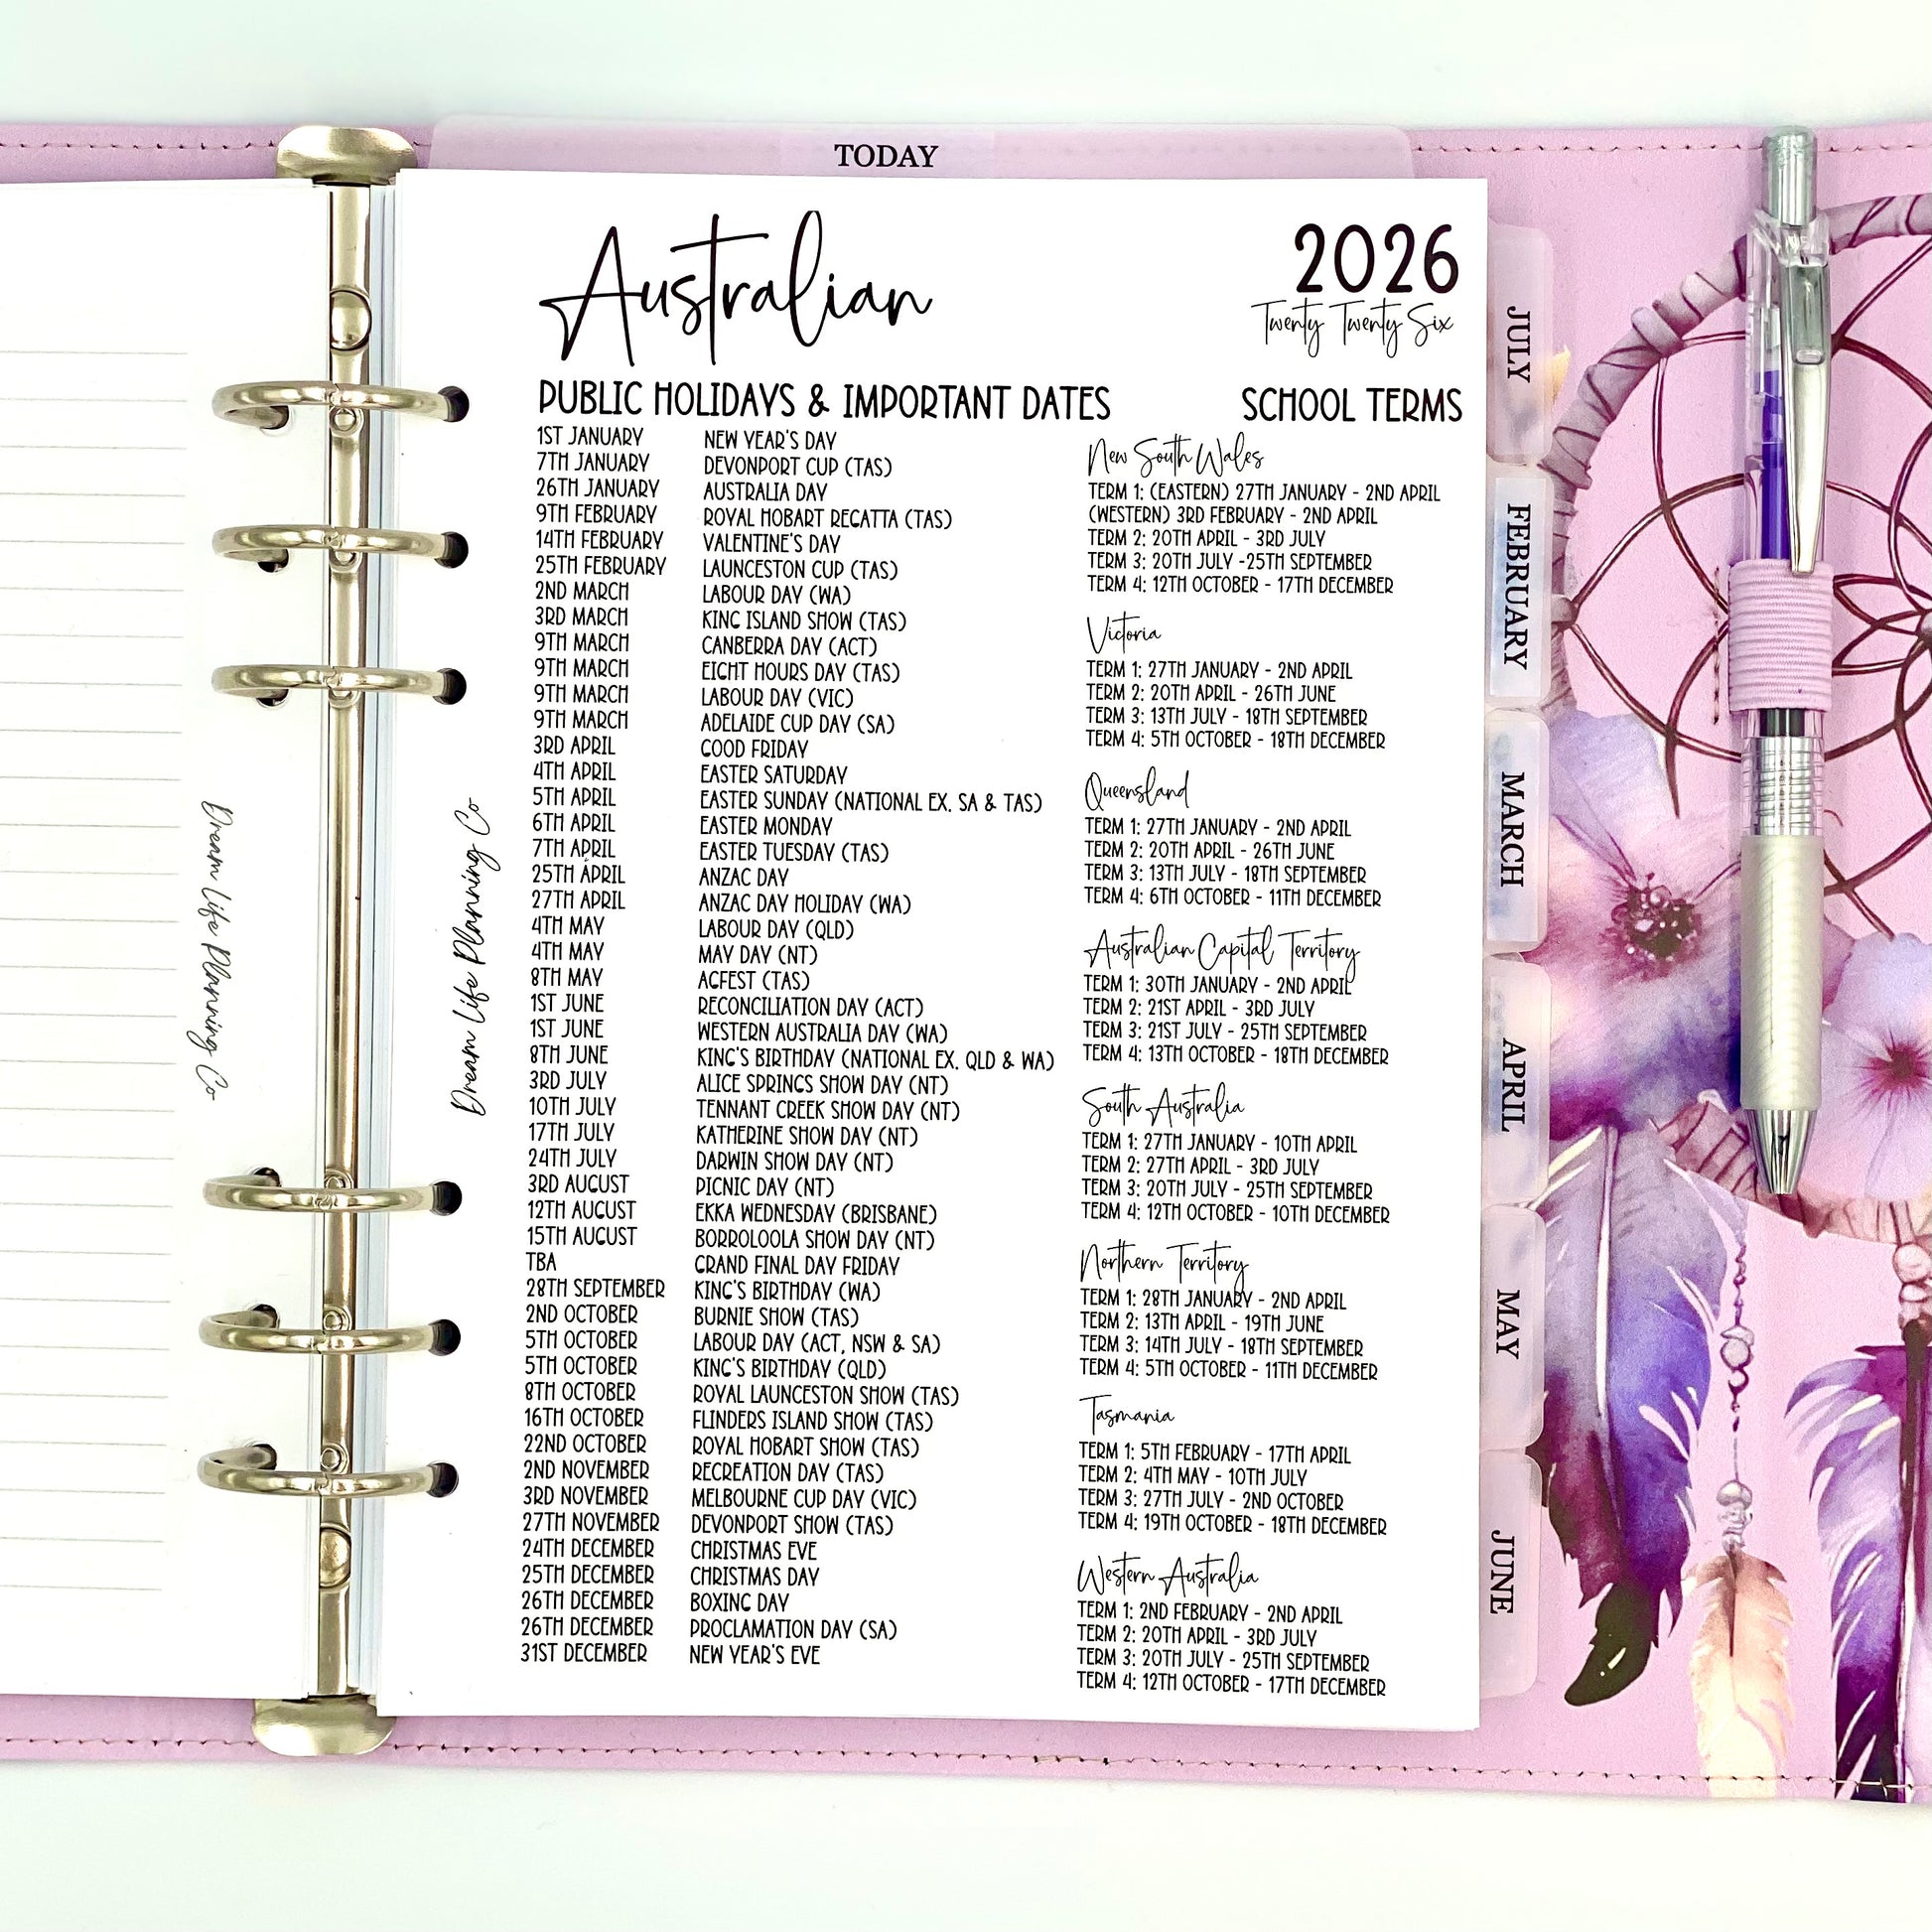 TODAY
Australian
2026
Twenty Twenty Six
PUBLIC HOLIDAYS & IMPORTANT DATES
1ST JANUARY NEW YEAR'S DAY
7TH JANUARY DEVONPORT CUP (TAS)
26TH JANUARY AUSTRALIA DAY
9TH FEBRUARY ROYAL HOBART REGATTA (TAS)
14TH FEBRUARY VALENTINE'S DAY
25TH FEBRUARY LAUNCESTON CUP (TAS)
2ND MARCH LABOUR DAY (WA)
3RD MARCH KING ISLAND SHOW (TAS)
9TH MARCH CANBERRA DAY (ACT)
9TH MARCH EIGHT HOURS DAY (TAS)
9TH MARCH LABOUR DAY (VIC)
9TH MARCH ADELAIDE CUP DAY (SA)
3RD APRIL GOOD FRIDAY
4TH APRIL EASTER SATURDAY
5TH APRIL EASTER SUNDAY (NATIONAL EX. SA & TAS)
6TH APRIL EASTER MONDAY
7TH APRIL EASTER TUESDAY (TAS)
25TH APRIL ANZAC DAY
27TH APRIL ANZAC DAY HOLIDAY (WA)
4TH MAY LABOUR DAY (QLD)
4TH MAY MAY DAY (NT)
8TH MAY AGFEST (TAS)
1ST JUNE RECONCILIATION DAY (ACT)
1ST JUNE WESTERN AUSTRALIA DAY (WA)
8TH JUNE KING'S BIRTHDAY (NATIONAL EX. QLD & WA)
3RD JULY ALICE SPRINGS SHOW DAY (NT)
10TH JULY TENNANT CREEK SHOW DAY (NT)
17TH JULY KATHERINE SHOW DAY (NT)
24TH JULY DARWIN SHOW DAY (NT)
3RD AUGUST PICNIC DAY (NT)
12TH AUGUST EKKA WEDNESDAY (BRISBANE)
15TH AUGUST BORROLOOLA SHOW DAY (NT)
TBA GRAND FINAL DAY FRIDAY
28TH SEPTEMBER KING'S BIRTHDAY (WA)
2ND OCTOBER BURNIE SHOW (TAS)
5TH OCTOBER LABOUR DAY (ACT, NSW & SA)
5TH OCTOBER KING'S BIRTHDAY (QLD)
8TH OCTOBER ROYAL LAUNCESTON SHOW (TAS)
16TH OCTOBER FLINDERS ISLAND SHOW (TAS)
22ND OCTOBER ROYAL HOBART SHOW (TAS)
2ND NOVEMBER RECREATION DAY (TAS)
3RD NOVEMBER MELBOURNE CUP DAY (VIC)
27TH NOVEMBER DEVONPORT SHOW (TAS)
24TH DECEMBER CHRISTMAS EVE
25TH DECEMBER CHRISTMAS DAY
26TH DECEMBER BOXING DAY
26TH DECEMBER PROCLAMATION DAY (SA)
31ST DECEMBER NEW YEAR'S EVE
SCHOOL TERMS
New South Wales
TERM 1: (EASTERN) 27TH JANUARY - 2ND APRIL
(WESTERN) 3RD FEBRUARY - 2ND APRIL
TERM 2: 20TH APRIL - 3RD JULY
TERM 3: 20TH JULY -25TH SEPTEMBER
TERM 4: 12TH OCTOBER - 17TH DECEMBER
Victoria
TERM 1: 27TH JANUARY - 2ND APRIL
TERM 2: 20TH APRIL - 26TH JUNE
TERM 3: 13TH JULY - 18TH SEPTEMBER
TERM 4: 5TH OCTOBER - 18TH DECEMBER
Queensland
TERM 1: 27TH JANUARY - 2ND APRIL
TERM 2: 20TH APRIL - 26TH JUNE
TERM 3: 13TH JULY - 18TH SEPTEMBER
TERM 4: 6TH OCTOBER - 11TH DECEMBER
Australian Capital Territory
TERM 1: 30TH JANUARY - 2ND APRIL
TERM 2: 21ST APRIL - 3RD JULY
TERM 3: 21ST JULY - 25TH SEPTEMBER
TERM 4: 13TH OCTOBER - 18TH DECEMBER
South Australia
TERM 1: 27TH JANUARY - 10TH APRIL
TERM 2: 27TH APRIL - 3RD JULY
TERM 3: 20TH JULY - 25TH SEPTEMBER
TERM 4: 12TH OCTOBER - 10TH DECEMBER
Northern Territory
TERM 1: 28TH JANUARY - 2ND APRIL
TERM 2: 13TH APRIL - 19TH JUNE
TERM 3: 14TH JULY - 18TH SEPTEMBER
TERM 4: 5TH OCTOBER - 11TH DECEMBER
Tasmania
TERM 1: 5TH FEBRUARY - 17TH APRIL
TERM 2: 4TH MAY - 10TH JULY
TERM 3: 27TH JULY - 2ND OCTOBER
TERM 4: 19TH OCTOBER - 18TH DECEMBER
Western Australia
TERM 1: 2ND FEBRUARY - 2ND APRIL
TERM 2: 20TH APRIL - 3RD JULY
TERM 3: 20TH JULY - 25TH SEPTEMBER
TERM 4: 12TH OCTOBER - 17TH DECEMBER
Dream Life Planning Co
Dream Life Planning Co
JULY
FEBRUARY
MARCH
APRIL
MAY
JUNE